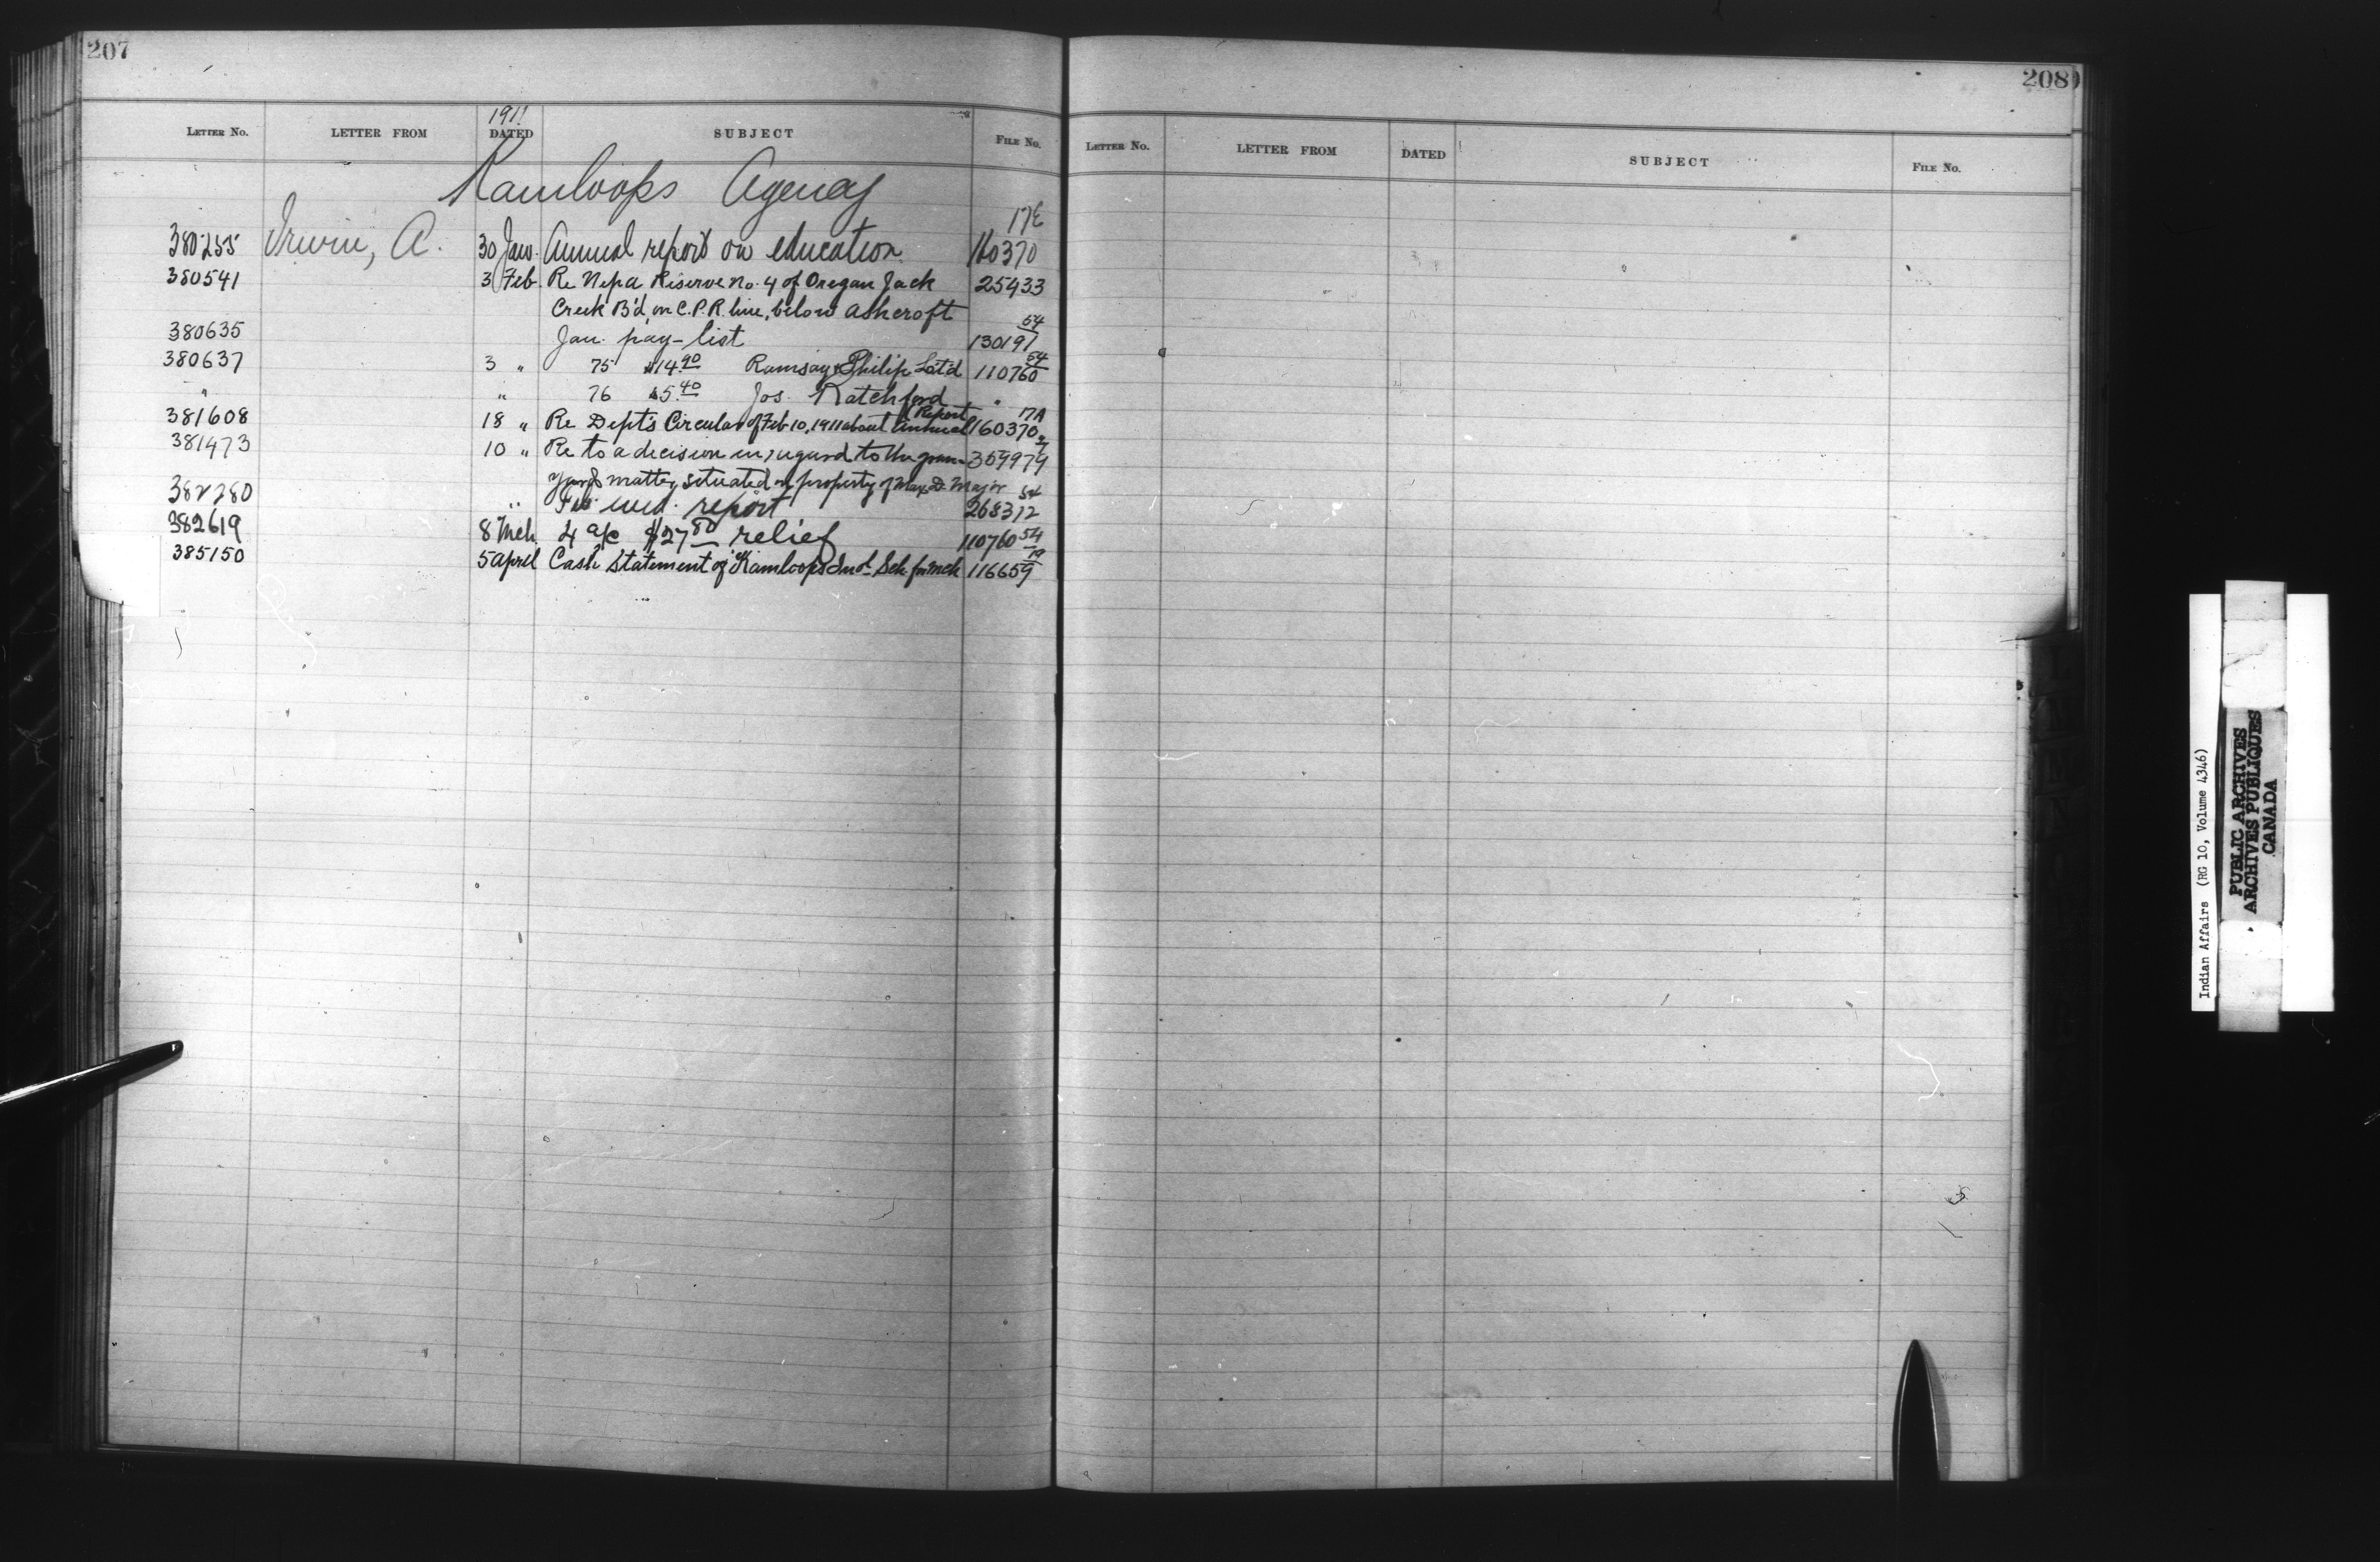 207
1911
LETTER No. LETTER FROM DATED SUBJECT FILE No.
Kamloops Agency
380255 Irwin, A. 30 Jan. Annual report on education 160370 17E
380541 3 Feb. Re Nepa Reserve No. 4 of Oregan Jack 25433
Creek B'd, on C.P.R. line, below Ashcroft
380635 Jan. pay-list 130197 54
380637 3 " 75 $14.90 Ramsay & Philip Lt'd 110760 54
" " 76 $5.40 Jos. Ratchford "
381608 18 " Re Dept's Circular of Feb 10, 1911 about Annual Report 160370 17A
381473 10 " Re to a decision in regard to the grave- 359979
yard matter, situated on property of Max D. Major
382280 " Feb med. report 268312 54
382619 8 Mch 4 a/c $27.80 relief 110760 54
385150 5 April Cash statement of Kamloops Ind. Sch. for Mch 116659 19
208
LETTER No. LETTER FROM DATED SUBJECT FILE No.
Indian Affairs (RG 10, Volume 4346)
PUBLIC ARCHIVES
ARCHIVES PUBLIQUES
CANADA